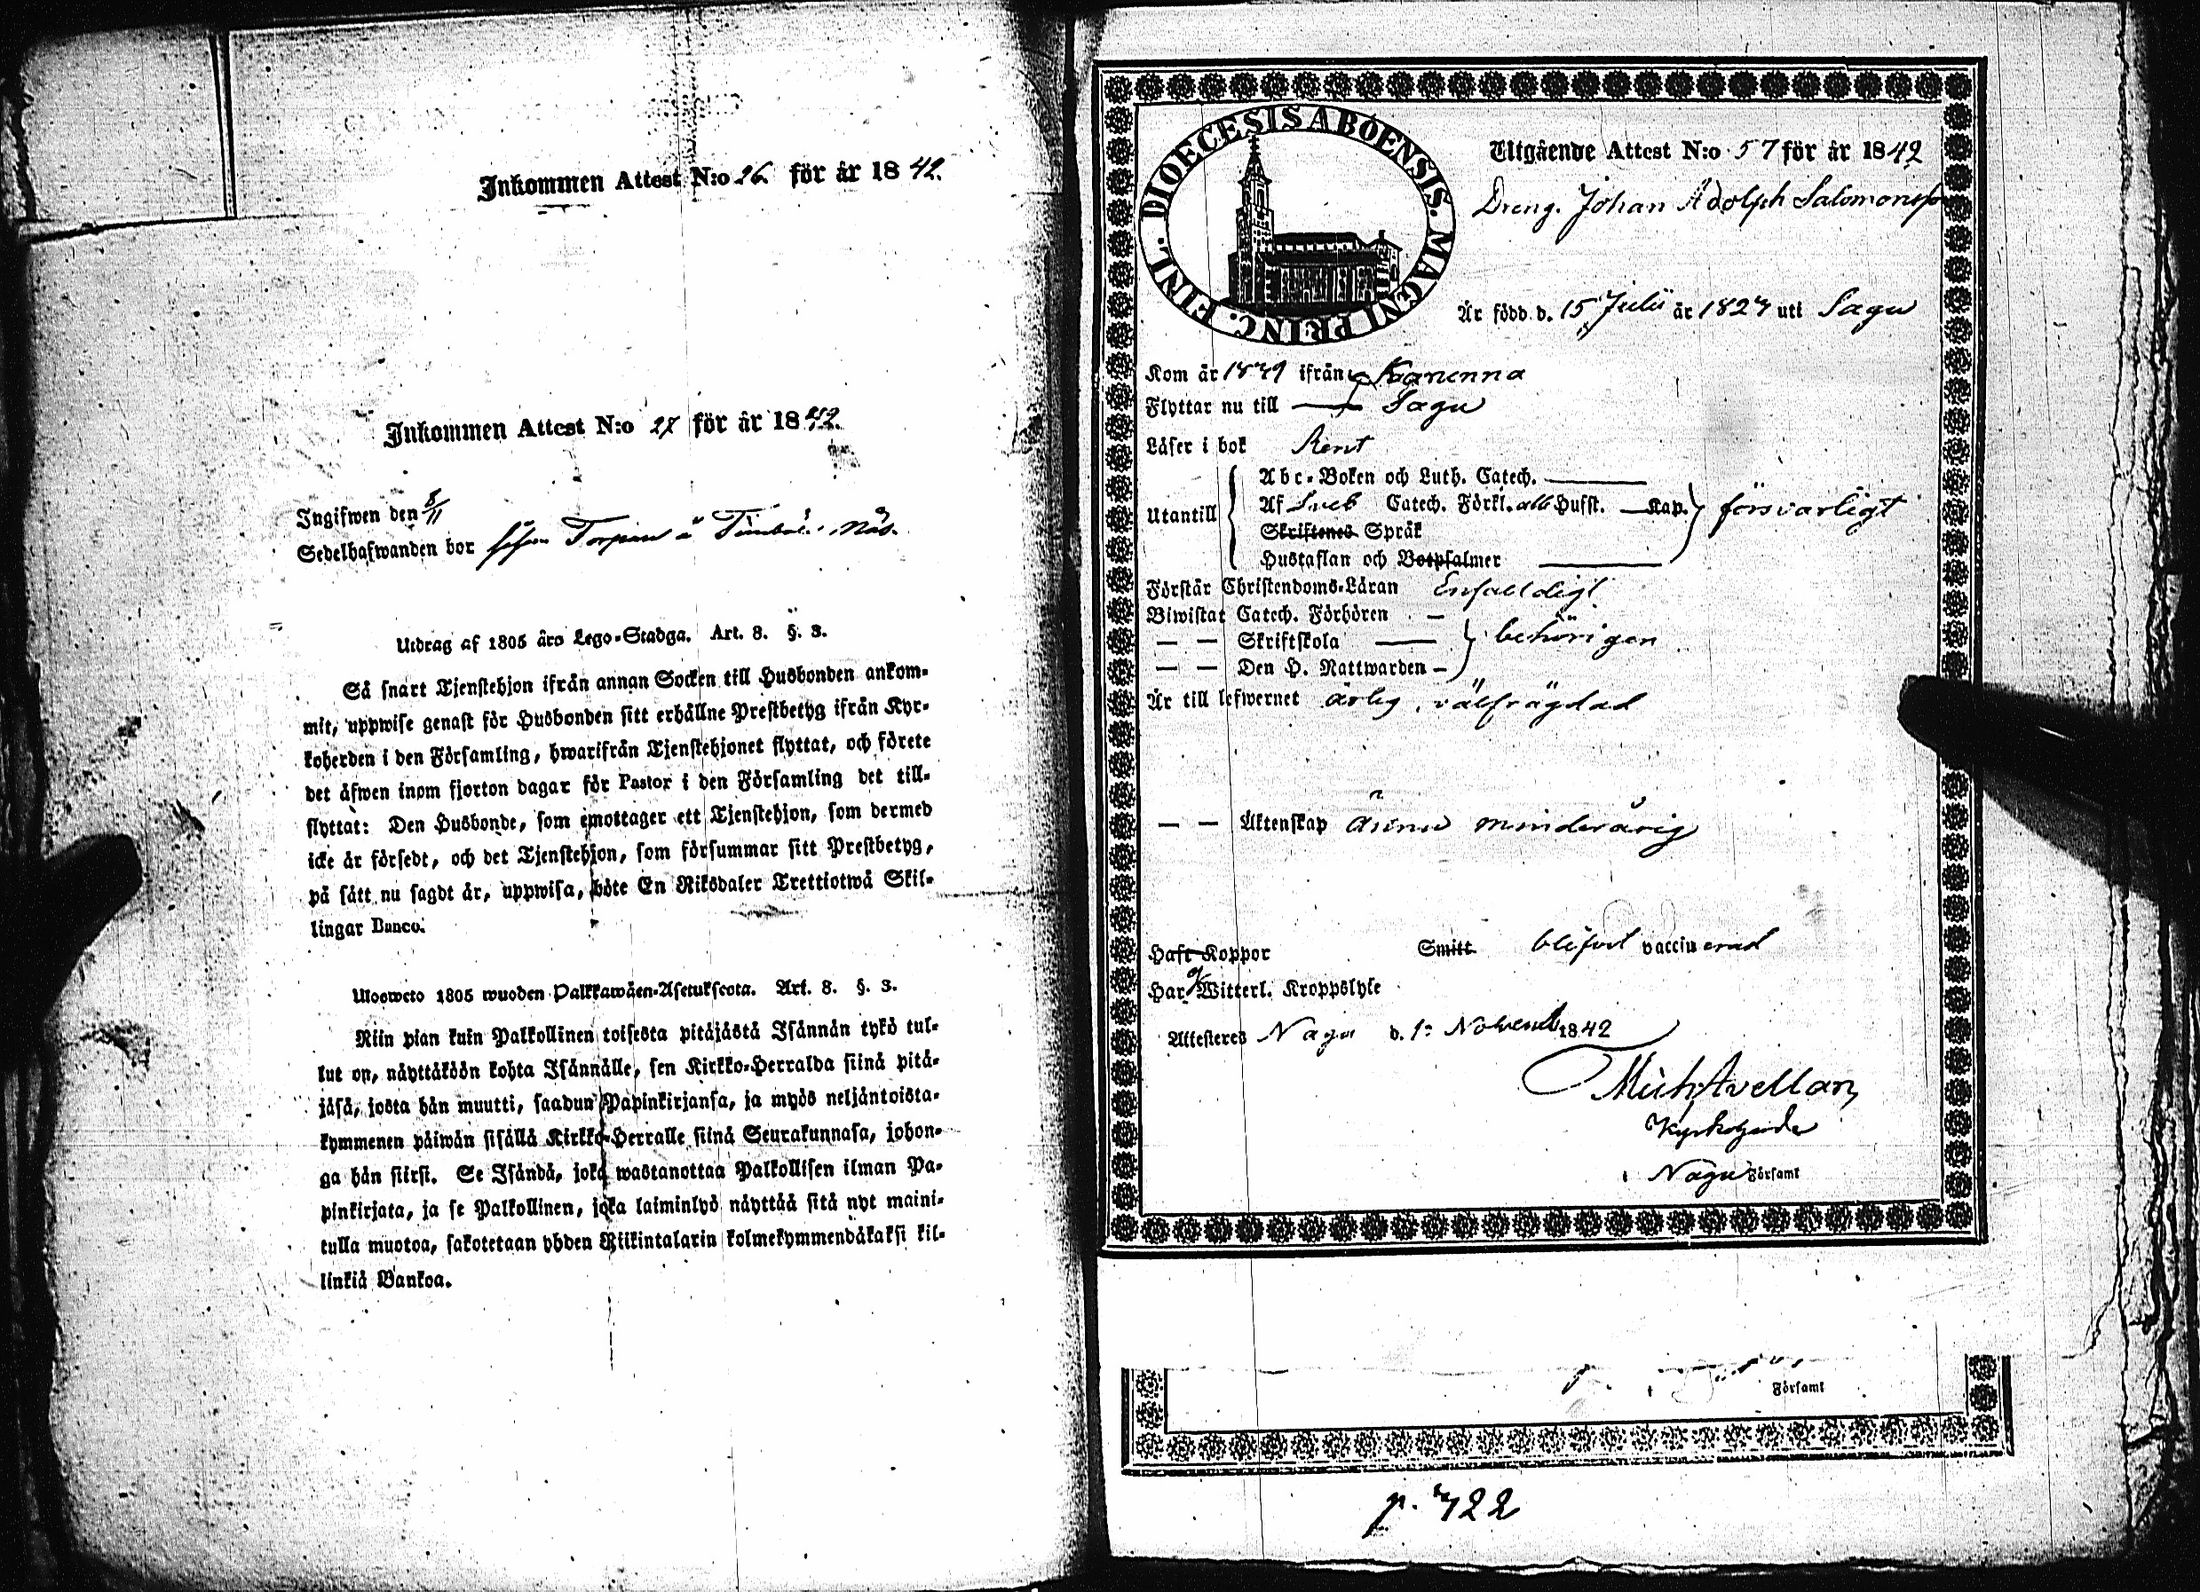 Inkommen Attest N:o 26. för år 1842.
Inkommen Attest N:o 27 för år 1842.
Ingifwen den 8/11
Sedelhafwanden bor Torpan å Näs.
Utdrag af 1805 års Lego-Stadga. Art. 8. §. 3.
Så snart Tjenstehjon ifrån annan Socken till Husbonden ankom-
mit, uppwise genast för Husbonden sitt erhållne Prestbetyg ifrån Kyr-
koherden i den Församling, hwarifrån Tjenstehjonet flyttat, och förete
det äfwen inom fjorton dagar för Pastor i den Församling det till-
flyttat: Den Husbonde, som emottager ett Tjenstehjon, som dermed
icke är försedt, och det Tjenstehjon, som försummar sitt Prestbetyg,
på sätt nu sagdt är, uppwisa, böte En Riksdaler Trettiotwå Skil-
lingar Banco.
Ulosweto 1805 wuoden Palkkawäen-Asetuksesta. Art. 8. §. 3.
Niin pian kuin Palkollinen toisesta pitäjästä Isännän tykö tul-
lut on, näyttäköön kohta Isännälle, sen Kirkko-Herralda siinä pitä-
jäsä, josta hän muutti, saadun Papinkirjansa, ja myös neljäntoista-
kymmenen päiwän sisällä Kirkko-Herralle siinä Seurakunnasa, johon-
ga hän siirsi. Se Isändä, joka wastanottaa Palkollisen ilman Pa-
pinkirjata, ja se Palkollinen, joka laiminlyö näyttää sitä nyt maini-
tulla muotoa, sakotetaan yhden Riikintalarin kolmekymmendäkaksi kil-
linkiä Bankoa.
DIOECESIS ABOENSIS. MAGNI PRINC. FINL.
Utgående Attest N:o 57 för år 1842
Dreng. Johan Adolph Salomonsson
Är född d. 15 Julii år 1827 uti Sagu
Kom år 1839 ifrån Karunna
Flyttar nu till Sagu
Läser i bok Rent
Utantill
Abc-Boken och Luth. Catech.
Af Sveb Catech. Förkl. alb Husst. Kap. försvarligt
Skriftenes Språk
Hustaflan och Botpsalmer
Förstår Christendoms-Läran Enfaldigt
Biwistat Catech. Förhören
— — Skriftskola behörigen
— — Den H. Nattwarden
Är till lefwernet ärlig, välfrägdad
— — Äktenskap ännu minderårig
Haft Koppor Smitt blifvit vaccinerad
Har ej Witterl. Kroppslyte
Attesteres Nagu d. 1: Novemb 1842
Mich Avellan,
Kyrkoherde
i Nagu Församl
Församl
p. 422